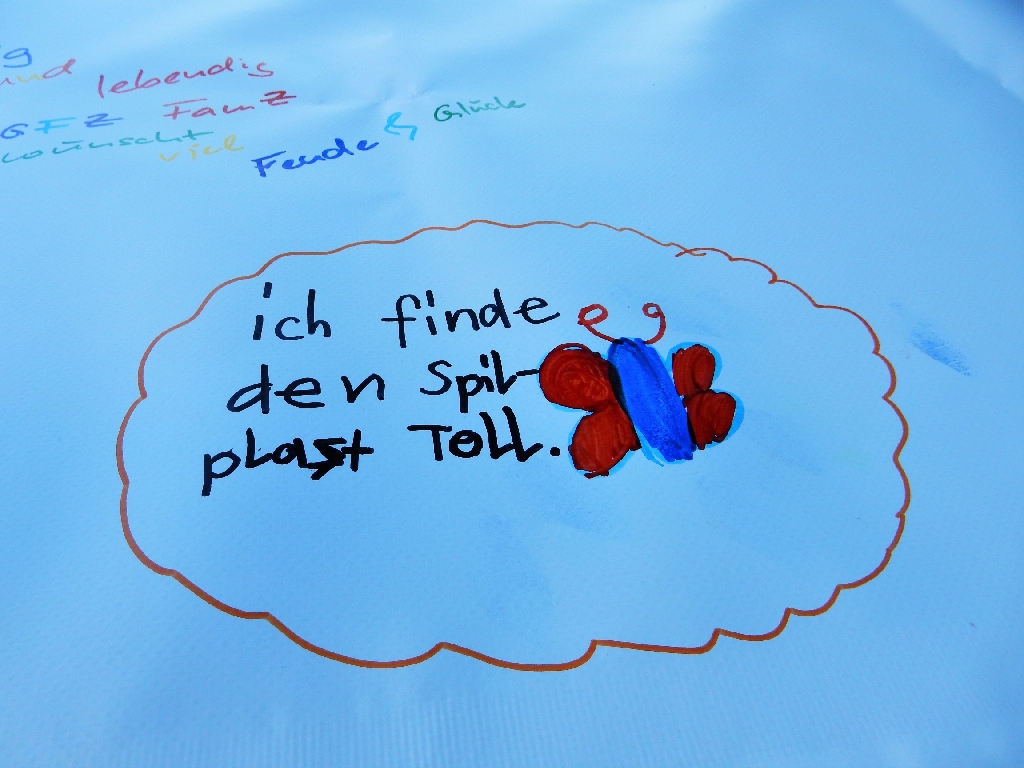 g
und lebendig
GFZ FamZ
wünscht viel Feude & Glück
ich finde
den Spil-
plast Toll.